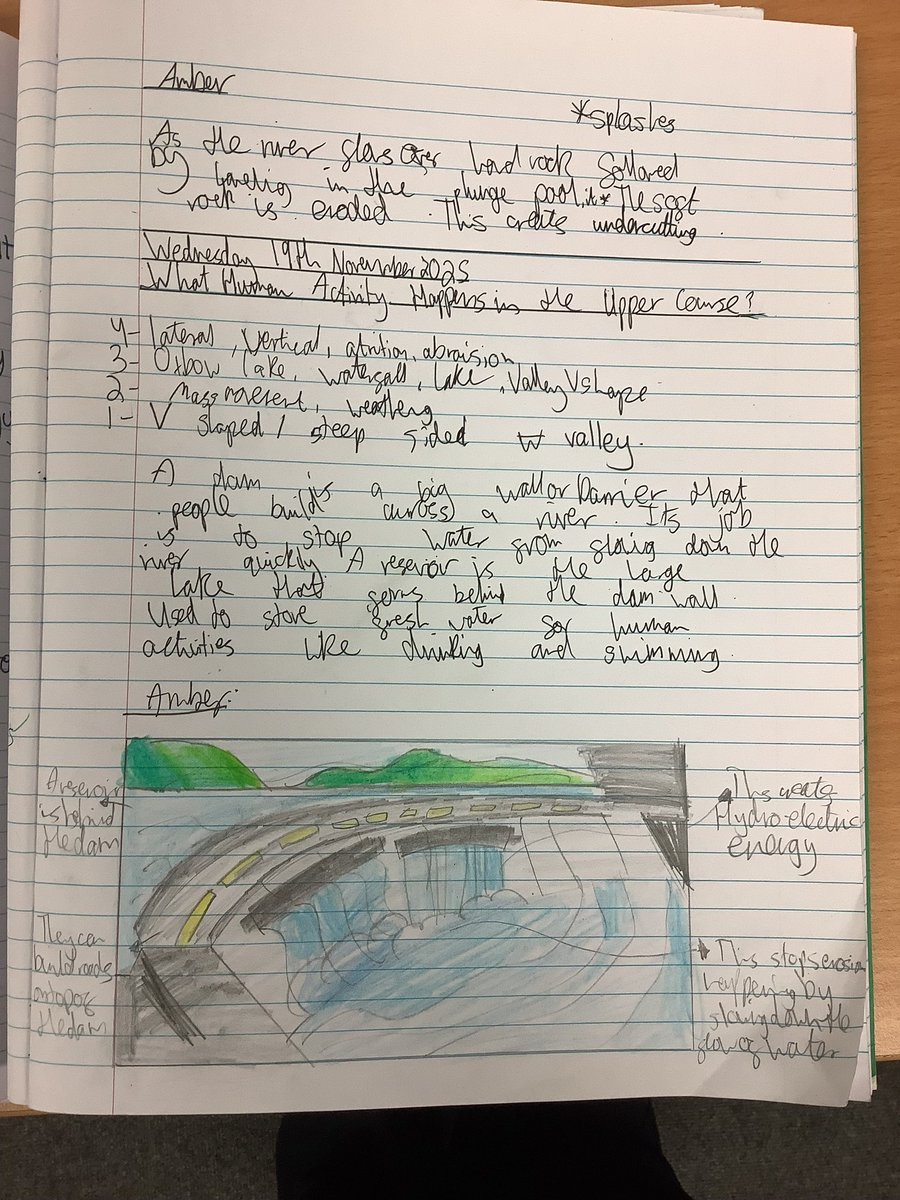 Amber
*splashes
As the river flows over hard rock followed
by landing in the plunge pool, it* The soft
rock is eroded. This create undercutting.
Wednesday 19th November 2025
What Human Activity Happens in the Upper Course?
4- lateral, vertical, atrition, abraision
3- Oxbow lake, waterfall, lake, Valley V shape
2- mass movement, weathering
1- V shaped / steep sided valley.
A dam is a big wall or barrier that
people build (across) a river. Its job
is to stop water from flowing down the
river quickly A reservoir is the large
lake that forms behind the dam wall.
Used to store fresh water for human
activities like drinking and swimming.
Amber:
A reservoir
is behind
the dam
They can
build roads
on top of
the dam
This creates
Hydro-electric
energy
This stops erosion
happening by
slowing down the
flow of water